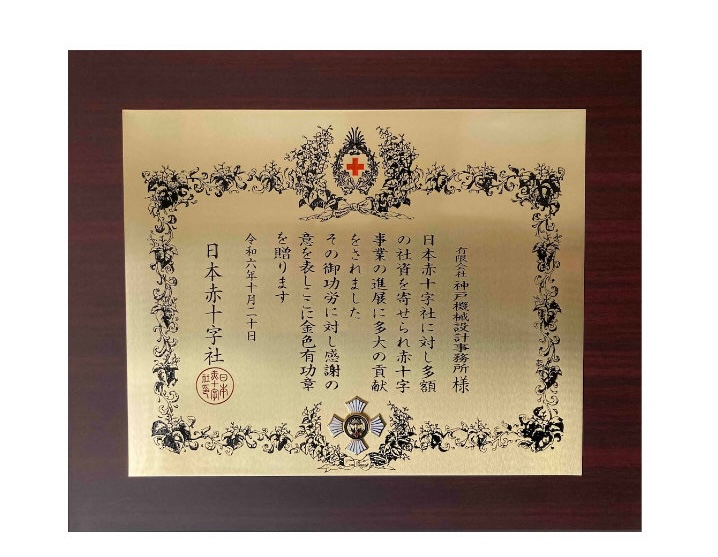 有限会社 神戸機械設計事務所 様
日本赤十字社に対し多額
の社資を寄せられ赤十字
事業の進展に多大の貢献
をされました
その御功労に対し感謝の
意を表しここに金色有功章
を贈ります
令和六年十月二十日
日本赤十字社
日本
赤十字
社印